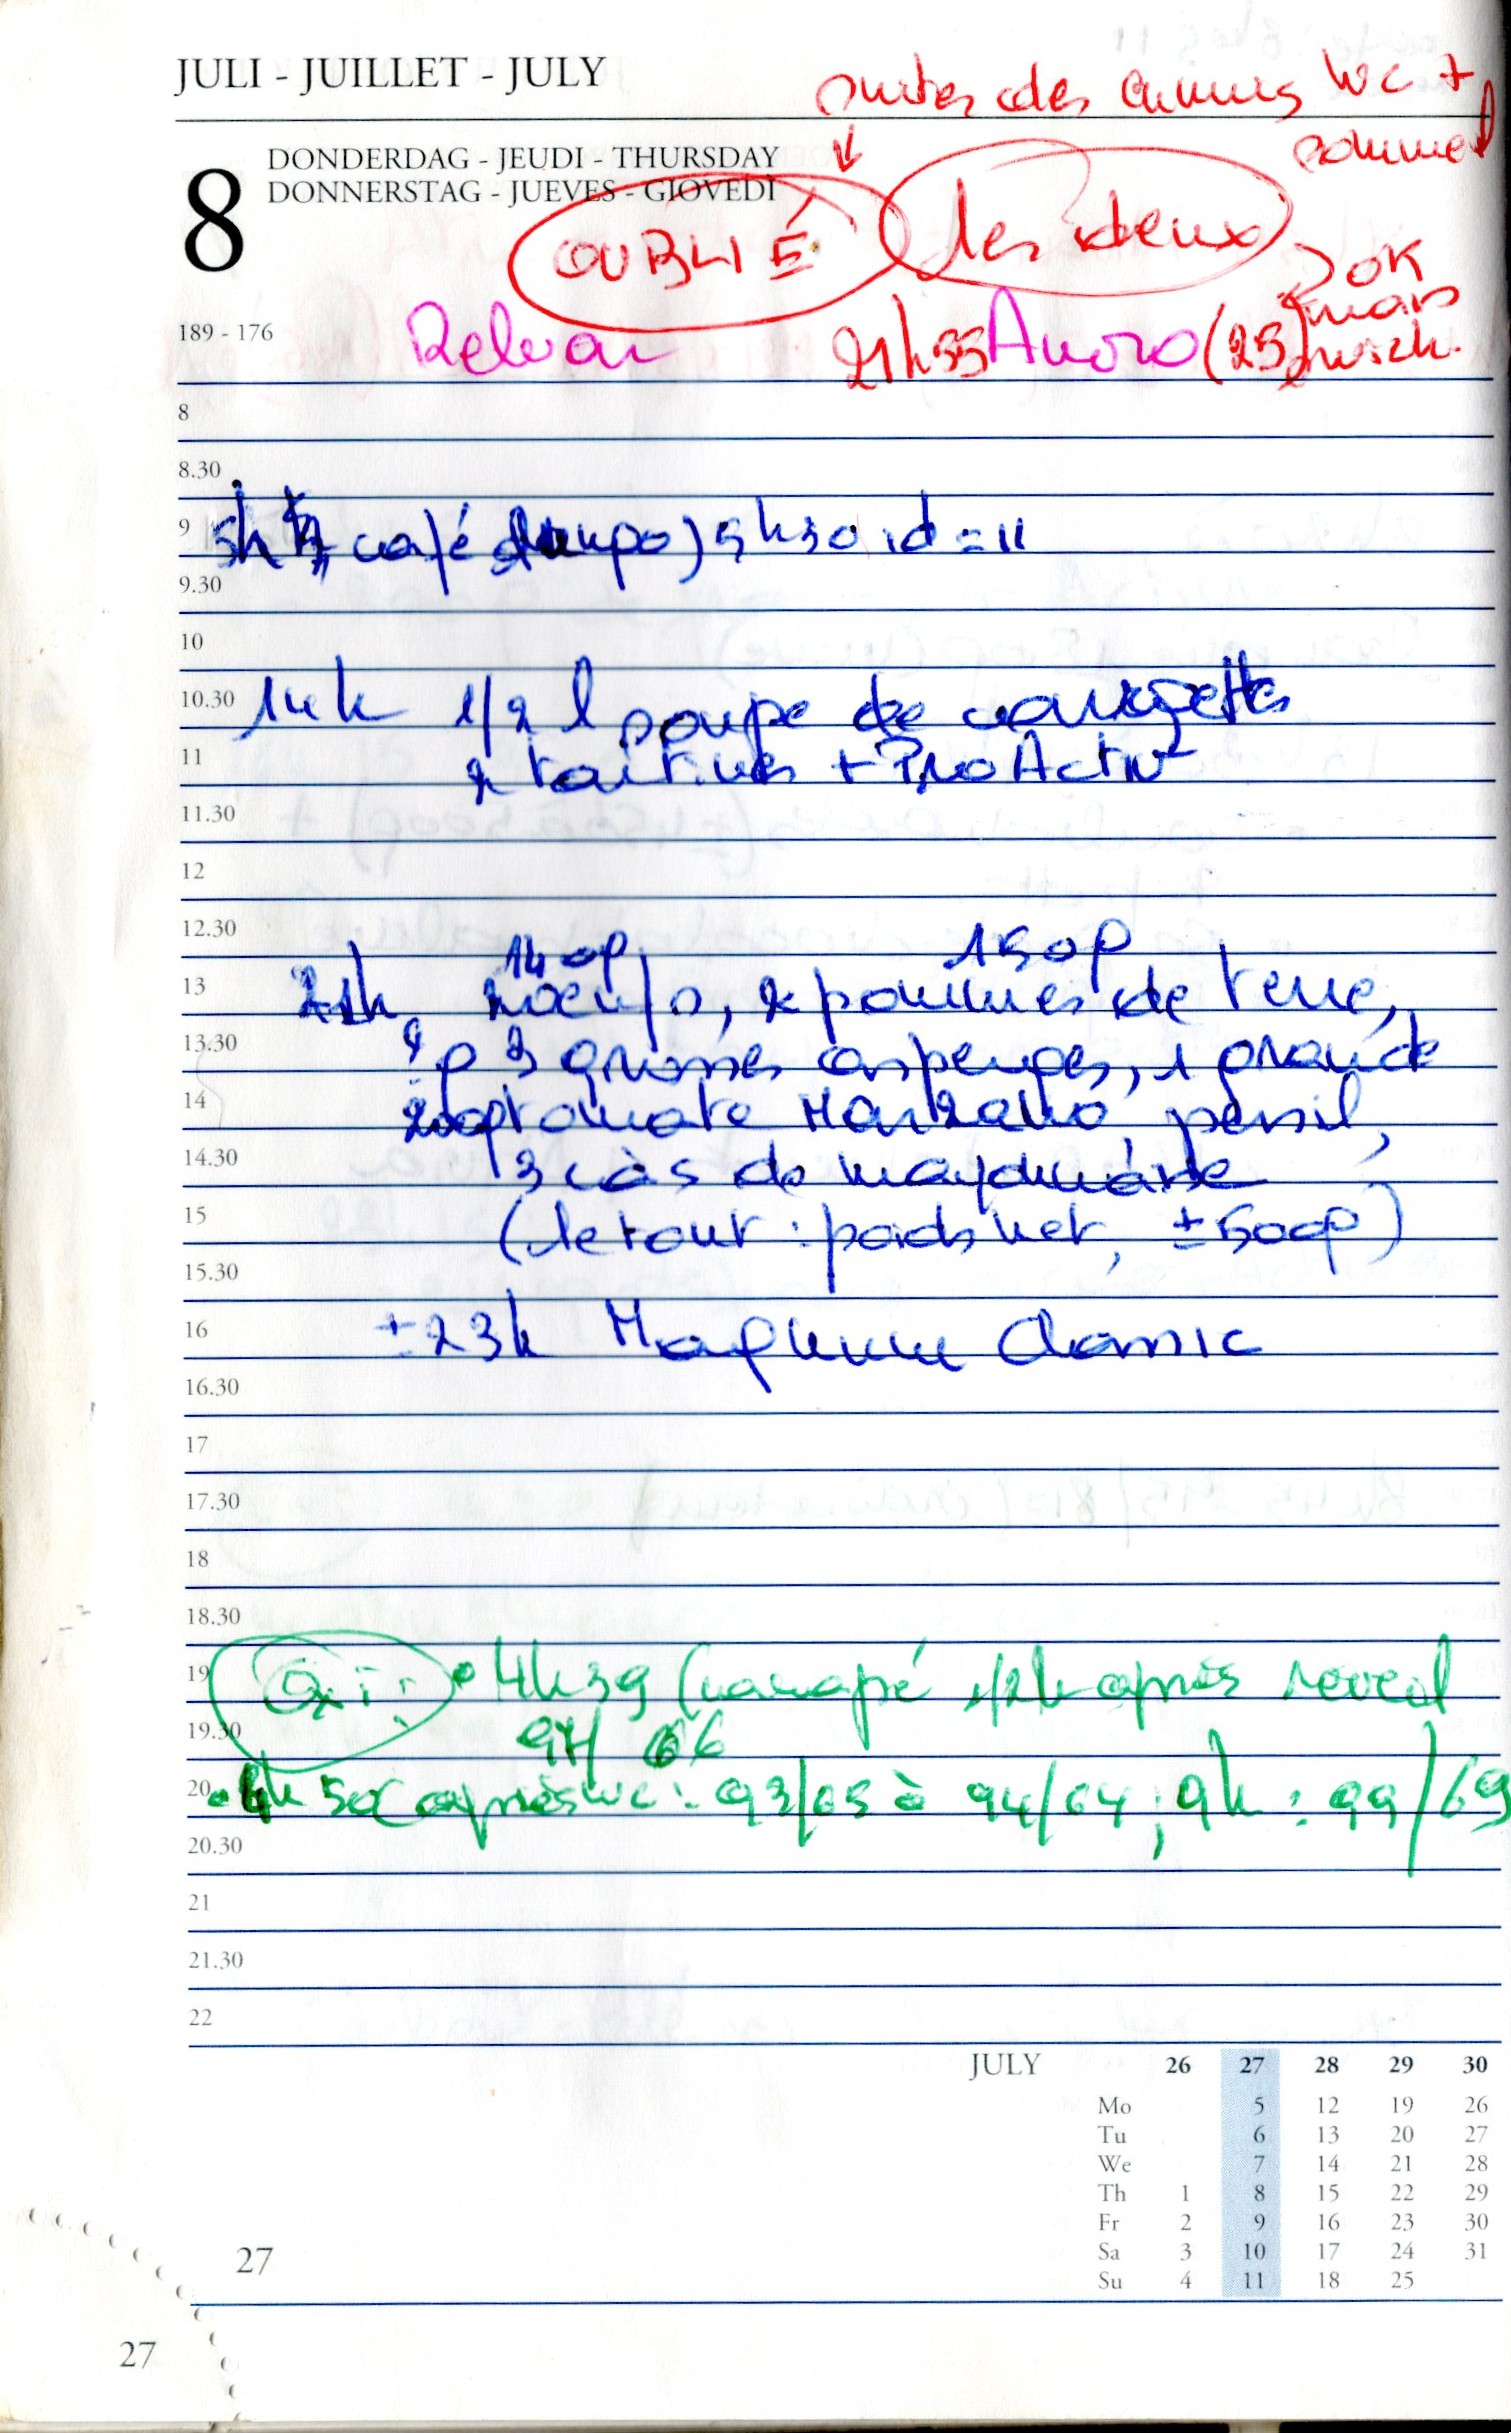 JULI - JUILLET - JULY
suites des ennuis WC +
sommeil
8
DONDERDAG - JEUDI - THURSDAY
DONNERSTAG - JUEVES - GIOVEDÌ
OUBLIÉ les deux
OK
mais
189 - 176
Relvar 21h55 Anoro (25)
8
8.30
9
5h café 5h30 id = 11
9.30
10
10.30
14h 1/2 l soupe de courgettes
11
2 tartines + ProActiv
11.30
12
12.30
140g 150g
13
21h, 2 oeufs, 2 pommes de terre,
13.30
3 grosses asperges, 1 grande
14
200g tomate Marzano, persil,
14.30
3 càs de mayonnaise
15
(le tout : poids net, ± 500g)
15.30
16
± 23h Magnum Classic
16.30
17
17.30
18
18.30
19
Oxi : • 4h39 (canapé 1/2h après réveil
19.30
97/66
20
• 4h50 (après WC : 93/65 à 94/64 ; 9h : 99/69
20.30
21
21.30
22
JULY 26 27 28 29 30
Mo 5 12 19 26
Tu 6 13 20 27
We 7 14 21 28
Th 1 8 15 22 29
Fr 2 9 16 23 30
Sa 3 10 17 24 31
Su 4 11 18 25
27
27